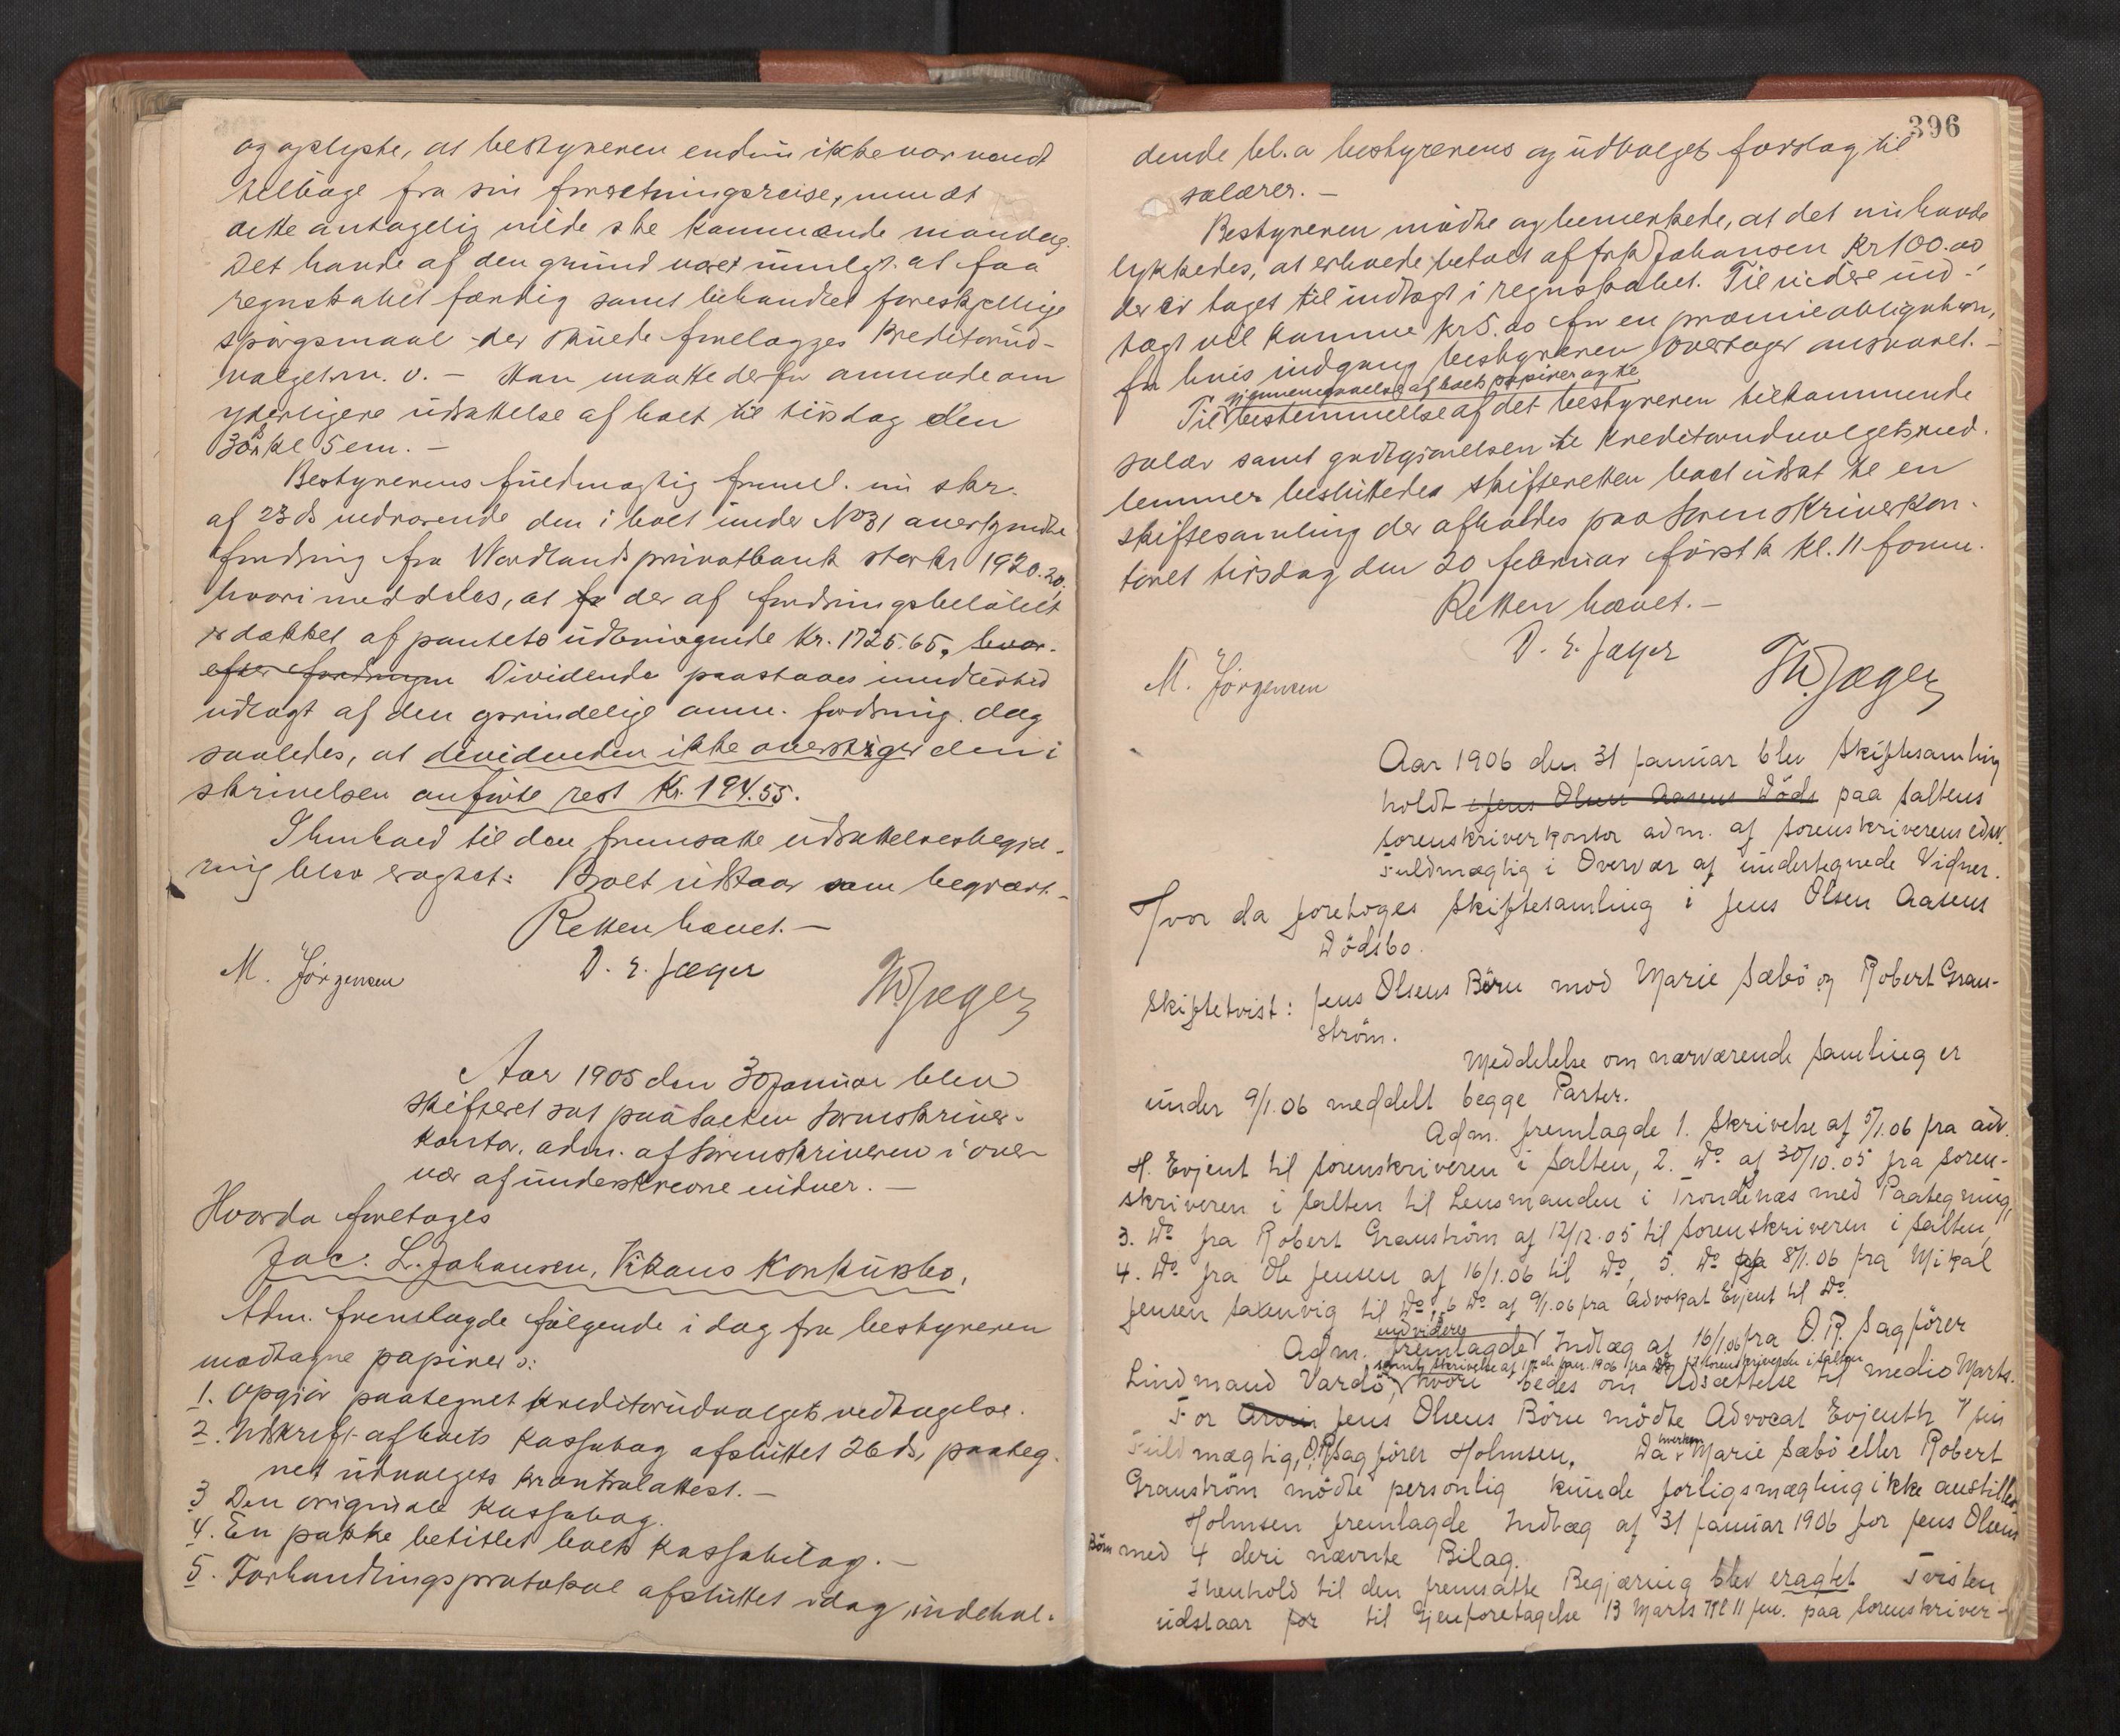 og oplyste, at bestyreren endnu ikke var vendt
tilbage fra sin forretningsreise, men at
dette antagelig vilde ske kommende mandag.
Det havde af den grund været umulgt. at faa
regnskabet færdig samt behandlet forskjellige
spörgsmaal der skulde forelægges Kreditorud-
valget m. v. – Han maatte derfor anmode om
yderligere udsættelse af boet til tirsdag den
30 ds kl 5 em. –
Bestyrerens fuldmægtig freml. nu skr.
af 23 ds vedrörende den i boet under No 31 anerkjendte
fordring fra Nordlands privatbank stor kr 1920.20,
hvori meddeles, at der af fordringsbelöbet
er dækket af pantets udbringende Kr. 1725.65, hvor-
efter fordringen Dividende paastaaes imidlertid
udlagt af den oprindelige anm. fordring. dog
saaledes, at dividenden ikke overstiger den i
skrivelsen anförte rest Kr. 194.55.
I henhold til den fremsatte udsættelsesbegjæ-
ring blev eragtet: Boet udstaar som begjært. –
Retten hævet. –
M. Jörgensen D. E. Jæger Th. Jæger
Aar 1905 den 30 Januar blev
skifteret sat paa Salten Sorenskriver-
kontor, adm. af Sorenskriveren i over
vær af underskrevne vidner. –
Hvorda foretoges
Jac. L. Johansen, Vikans Konkursbo,
Adm. fremlagde fölgende i dag fra bestyreren
modtagne papirer o:
1. Opgjör paategnet kreditorudvalgets vedtagelse.
2. Udskrift af boets Kassabog afsluttet 26 ds, paateg-
net udvalgets kontrolattest. –
3 Den originale Kassabog.
4. En pakke betitlet boets Kassabilag. –
5. Forhandlingsprotokol afsluttet idag, indehol-
396
dende bl.a bestyrerens og udvalgets forslag til
salærer. –
Bestyreren mödte og bemerkede, at det nu havde
lykkedes, at erholde betalt af frk Johansen Kr 100.00
der er taget til indtægt i regnskabet. Til videre ind-
tægt vil komme Kr 5.00 for en præmieobligation,
for hvis indgang bestyreren overtager ansvaret. –
gjennemgaaelse af boets papirer og til
Til bestemmelse af det bestyreren tilkommende
salær samt godtgjörelsen til Kreditorudvalgets med-
lemmer besluttedes skifteretten boet udsat til en
skiftesamling der afholdes paa Sorenskriverkon-
toret tirsdag den 20 februar först k kl. 11 form.
Retten hævet. –
M. Jörgensen D. E. Jæger Th. Jæger
Aar 1906 den 31 Januar blev Skiftesamling
holdt i Jens Olsen Aasens Döds paa Saltens
Sorenskriverkontor adm. af Sorenskriverens edsv.
Fuldmægtig i Overvær af undertegnede Vidner.
Hvor da foretoges Skiftesamling i Jens Olsen Aasens
Dödsbo.
Skiftetvist: Jens Olsens Börn mod Marie Sæbö og Robert Gran-
ström.
Meddelelse om nærværende Samling er
under 9/1.06 meddelt begge Parter.
Adm. fremlagde 1. Skrivelse af 5/1.06 fra adv.
H. Evjent til Sorenskriveren i Salten, 2. Do af 30/10.05 fra Soren-
skriveren i Salten til Lensmanden i Trondenæs med Paategning,
3. Do fra Robert Granström af 12/12.05 til Sorenskriveren i Salten,
4. Do fra Ole Jensen af 16/1.06 til Do, 5. Do 8/1.06 fra Mikal
Jensen Saxenvig til Do, 6 Do af 9/1.06 fra Advokat Evjent til Do.
endvidere
Adm. fremlagde Indlæg af 16/1.06 fra O.R. Sagförer
samt Skrivelse af 17de Jan. 1906 fra Do til Sorenskriveren i Salten
Lindmand Vardö, hvori bedes om Udsættelse til medio Marts.
For Jens Olsens Börn mödte Advocat Evjenth v/ sin
Fuldmægtig, O.R Sagförer Holmsen. Da hverken Marie Sæbö eller Robert
Granström mödte personlig kunde forligsmægling ikke anstilles
Holmsen fremlagde Indlæg af 31 Januar 1906 for Jens Olsens
Börn med 4 deri nævnte Bilag.
I Henhold til den fremsatte Begjæring blev eragtet Tvisten
udstaar for til Gjenforetagelse 13 Marts Kl 11 fm. paa Sorenskriver-